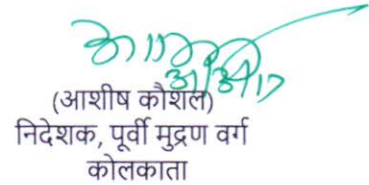 (आशीष कौशल)
निदेशक, पूर्वी मुद्रण वर्ग
कोलकाता